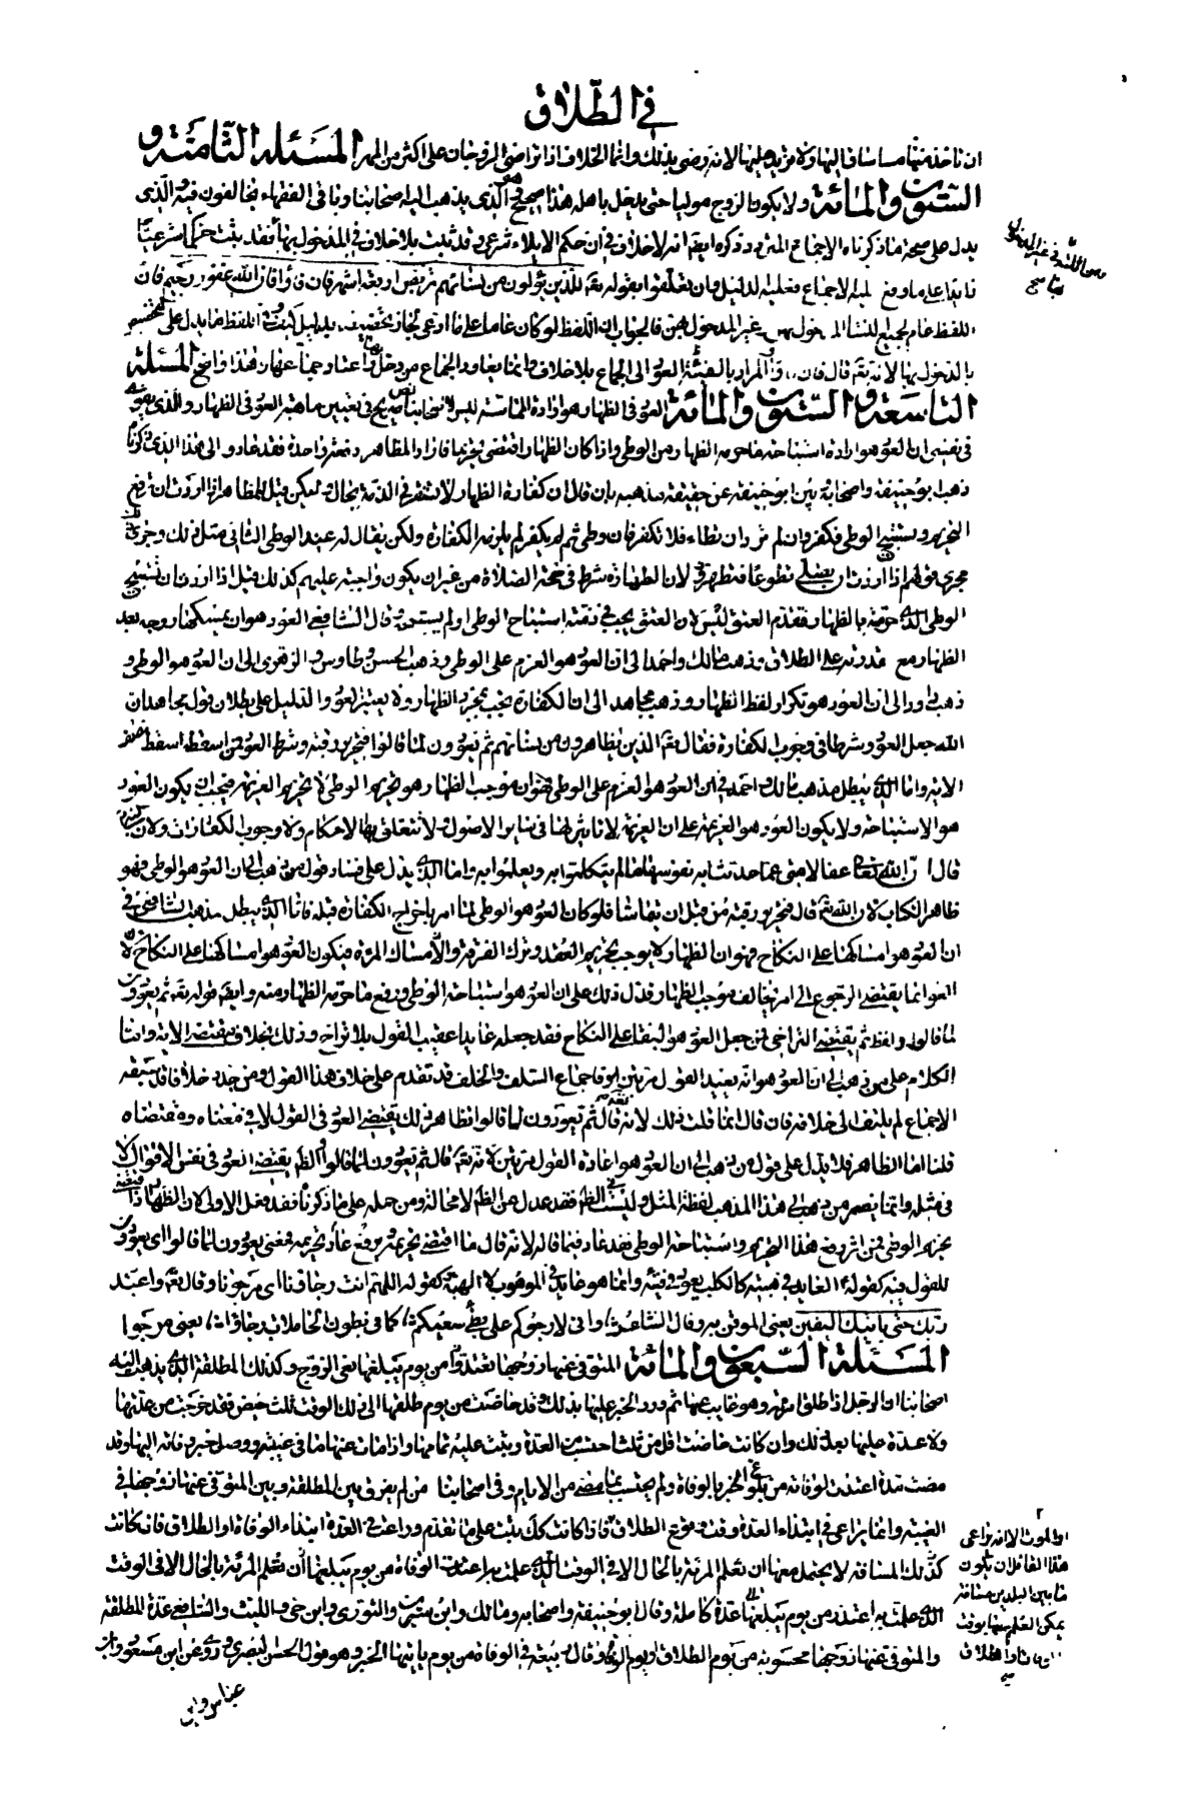 في الطلاق
ان تأخذ منها ما ساق اليها وزيادة عليها لانه رضي بذلك وانما الخلاف اذا تراضى الزوجان على اكثر من المهر المسئلة الثامنة و
الستون والمائة ولا يكون الزوج موليا حتى يدخل باهله هذا صحيح وهو الذي يذهب اليه اصحابنا وباقي الفقهاء يخالفون فيه والذي
يدل على صحة ما ذكرناه الاجماع المتردد ذكره ايضا انه لا خلاف في ان حكم الايلاء شرعي وقد ثبت بلا خلاف في المدخول بها فقد ثبت حكما شرعيا
زايدا على ما وقع عليه الاجماع فعليه الدليل فان تعلقوا بقوله تعالى للذين يؤلون من نسائهم تربص اربعة اشهر فان فاؤا فان الله غفور رحيم فان
اللفظ عام لجميع النساء المدخول بهن وغير المدخول بهن فالجواب ان اللفظ لو كان عاما على ما ادعي لجاز تخصيصه بدليل كيف وفي اللفظ ما يدل على تخصيصه
بالدخول بها لانه تعالى قال فان فاؤا والمراد بالفيئة العود الى الجماع بلا خلاف وانما يعاود الجماع من دخل بها واعتاد جماعها وهذا واضح المسئلة
التاسعة والستون والمائة العود في الظهار هو ارادة المماسة ليس لاصحابنا نص صريح في تعيين ما هية العود في الظهار والذي يقوى
في نفسي ان العود هو ارادة استباحة ما حرمه الظهار من الوطي واذا كان الظهار اقتضى تحريما فاراد المظاهر دفعه فقد عاد والى هذا الذي ذكرناه
ذهب ابو حنيفة واصحابه بين ابو حنيفة عن حقيقة مذهبه بان قال ان كفارة الظهار لا تستقر في الذمة بحال لكن قيل للمظاهر اذا اردت ان ترفع
التحريم وتستبيح الوطي فكفر وان لم ترد ان تطأ فلا تكفر فان وطي ثم لم يكفر لم يلزمه الكفارة ولكن يقال له عند الوطي الثاني مثل ذلك وجرى ذلك
مجرى قولهم اذا اردت ان تصلي تطوعا فتطهر لان الطهارة شرط في صحة الصلاة من غير ان يكون واجبة عليهم كذلك قيل اذا اردت ان تستبيح
الوطي الذي حرمته بالظهار فقدم العتق ليس لان العتق يجب في ذمته استباح الوطي او لم يستبحه وقال الشافعي العود هو ان يمسكها زوجة بعد
الظهار مع قدرته على الطلاق وذهب مالك واحمد الى ان العود هو العزم على الوطي وذهب الحسن وطاوس والزهري الى ان العود هو الوطي و
ذهب داود الى ان العود هو تكرار لفظ الظهار وذهب مجاهد الى ان الكفارة تجب بمجرد الظهار ولا يعتبر العود والدليل على بطلان قول مجاهد ان
الله جعل العود شرطا في وجوب الكفارة فقال تعالى الذين يظاهرون من نسائهم ثم يعودون لما قالوا فتحرير رقبة وشرط العود فمن اسقطه اسقط نص
الاية واما الذي يبطل مذهب مالك واحمد في ان العود هو العزم على الوطي فهو ان موجب الظهار هو تحريم الوطي لا تحريم العزيمة فيجب ان يكون العود
هو الاستباحة ولا يكون العود هو العزيمة على ان العزيمة لا تأثير لها في سائر الاصول ولا تتعلق بها الاحكام ولا وجوب الكفارات ولان النبي
قال ان الله تعالى عفا لامتي عما حدثت به نفوسها ما لم يتكلموا به ويعملوا به واما الذي يدل على فساد قول من ذهب الى ان العود هو الوطي فهو
ظاهر الكتاب لان الله تعالى قال فتحرير رقبة من قبل ان يتماسا فلو كان العود هو الوطي لما امر باخراج الكفارة قبله فاما الذي يبطل مذهب الشافعي في
ان العود هو امساكها على النكاح فهو ان الظهار لا يوجب تحريم العقد وترك الفرقة والامساك المرءة فيكون العود هو امساكها على النكاح لان
العود انما يقتضي الرجوع الى امر يخالف موجب الظهار فدل ذلك على ان العود هو استباحة الوطي ورفع ما حرمه الظهار منه وايضا قوله تعالى ثم يعودون
لما قالوا ولفظ ثم يقتضي التراخي فمن جعل العود هو البقاء على النكاح فقد جعله عايدا عقيب القول بلا تراخ وذلك بخلاف مقتضى الاية واما
الكلام على من ذهب الى ان العود هو ان يعيد القول مرتين فاجماع السلف والخلف قد تقدم على خلاف هذا القول ومن جدد خلافا قد سبقه
الاجماع لم يلتفت الى خلافه فان قال انما قلت ذلك لانه تعالى قال ثم يعودون لما قالوا وظاهر ذلك يقتضي العود في القول لا في معناه ومقتضاه
قلنا اما الظاهر فلا يدل على قول من ذهب الى ان العود هو اعادة القول مرتين لانه تعالى قال ثم يعودون لما قالوا والظاهر يقتضي العود في نفس الاقوال لا
في مثله وانما يضمر من ذهب الى هذا المذهب لفظة المثل وليست في الظاهر فقد عدل عن الظاهر لا محالة ومن حمله على ما ذكرناه فقد فعل الاولى لان الظهار اذا اقتضى
تحريم الوطي فمن اثر رفع هذا التحريم واستباحة الوطي فقد عاد فيما قاله لانه قال ما اقتضى تحريمه ورفع عاد تحريمه فمعنى يعودون لما قالوا اي يعودون
للقول فيه كقوله ۴ العايد في هبته كالكلب يعود في قيئه وانما هو عايد في الموهوب لا الهبة كقوله اللهم انت رجاؤنا اي مرجونا وقال تعالى واعبد
ربك حتى يأتيك اليقين يعني الموقن به وقال الشاعر واني لارجوكم على بطء سعيكم / كما في بطون الحاملات رجاؤها / يعني مرجوا
المسئلة السبعون والمائة المتوفى عنها زوجها تعتد من يوم يبلغها نعي الزوج وكذلك المطلقة الذي يذهب اليه
اصحابنا ان الرجل اذا طلق امرءته وهو غايب عنها ثم ورد الخبر عليها بذلك وقد حاضت من يوم طلقها الى ذلك الوقت ثلث حيض فقد خرجت من عدتها
ولا عدة عليها بعد ذلك وان كانت حاضت اقل من ثلث احتسبت من العدة وبنت عليه تمامها واذا مات عنها في غيبته ووصل خبر وفاته اليها وقد
مضت مدة اعتدت لوفاته من بلوغ الخبر بالوفاة ولم يحتسب بما مضى من الايام وفي اصحابنا من لم يفرق بين المطلقة وبين المتوفى عنها زوجها في
الغيبة وانما يراعى في ابتداء العدة وقت وقوع الطلاق فاذا كانت كذلك بنت على ما تقدم وراعت في العدة ابتداء الوفاة او الطلاق فان كانت
كذلك المسافة لا يحتمل معها ان تعلم المرءة بالحال الا في الوقت الذي علمت به اعتدت الوفاة من يوم يبلغها ان تعلم المرءة بالحال الا في الوقت
الذي علمت به اعتدت من يوم يبلغها عدة كاملة وقال ابو حنيفة واصحابه ومالك وابن سيرين والثوري وابن حي والليث والشافعي عدة المطلقة
والمتوفى عنها زوجها محسوبة من يوم الطلاق ويوم الوفاة وقال ربيعة في الوفاة من يوم يأتيها الخبر وهو قول الحسن البصري وروي عن ابن مسعود وابن
عباس وابن
او الموت لانه يراعى
هذا القائل ان يكون
ما بين البلدين مسافة
يمكن العلم معها بوقت
الوفاة او الطلاق